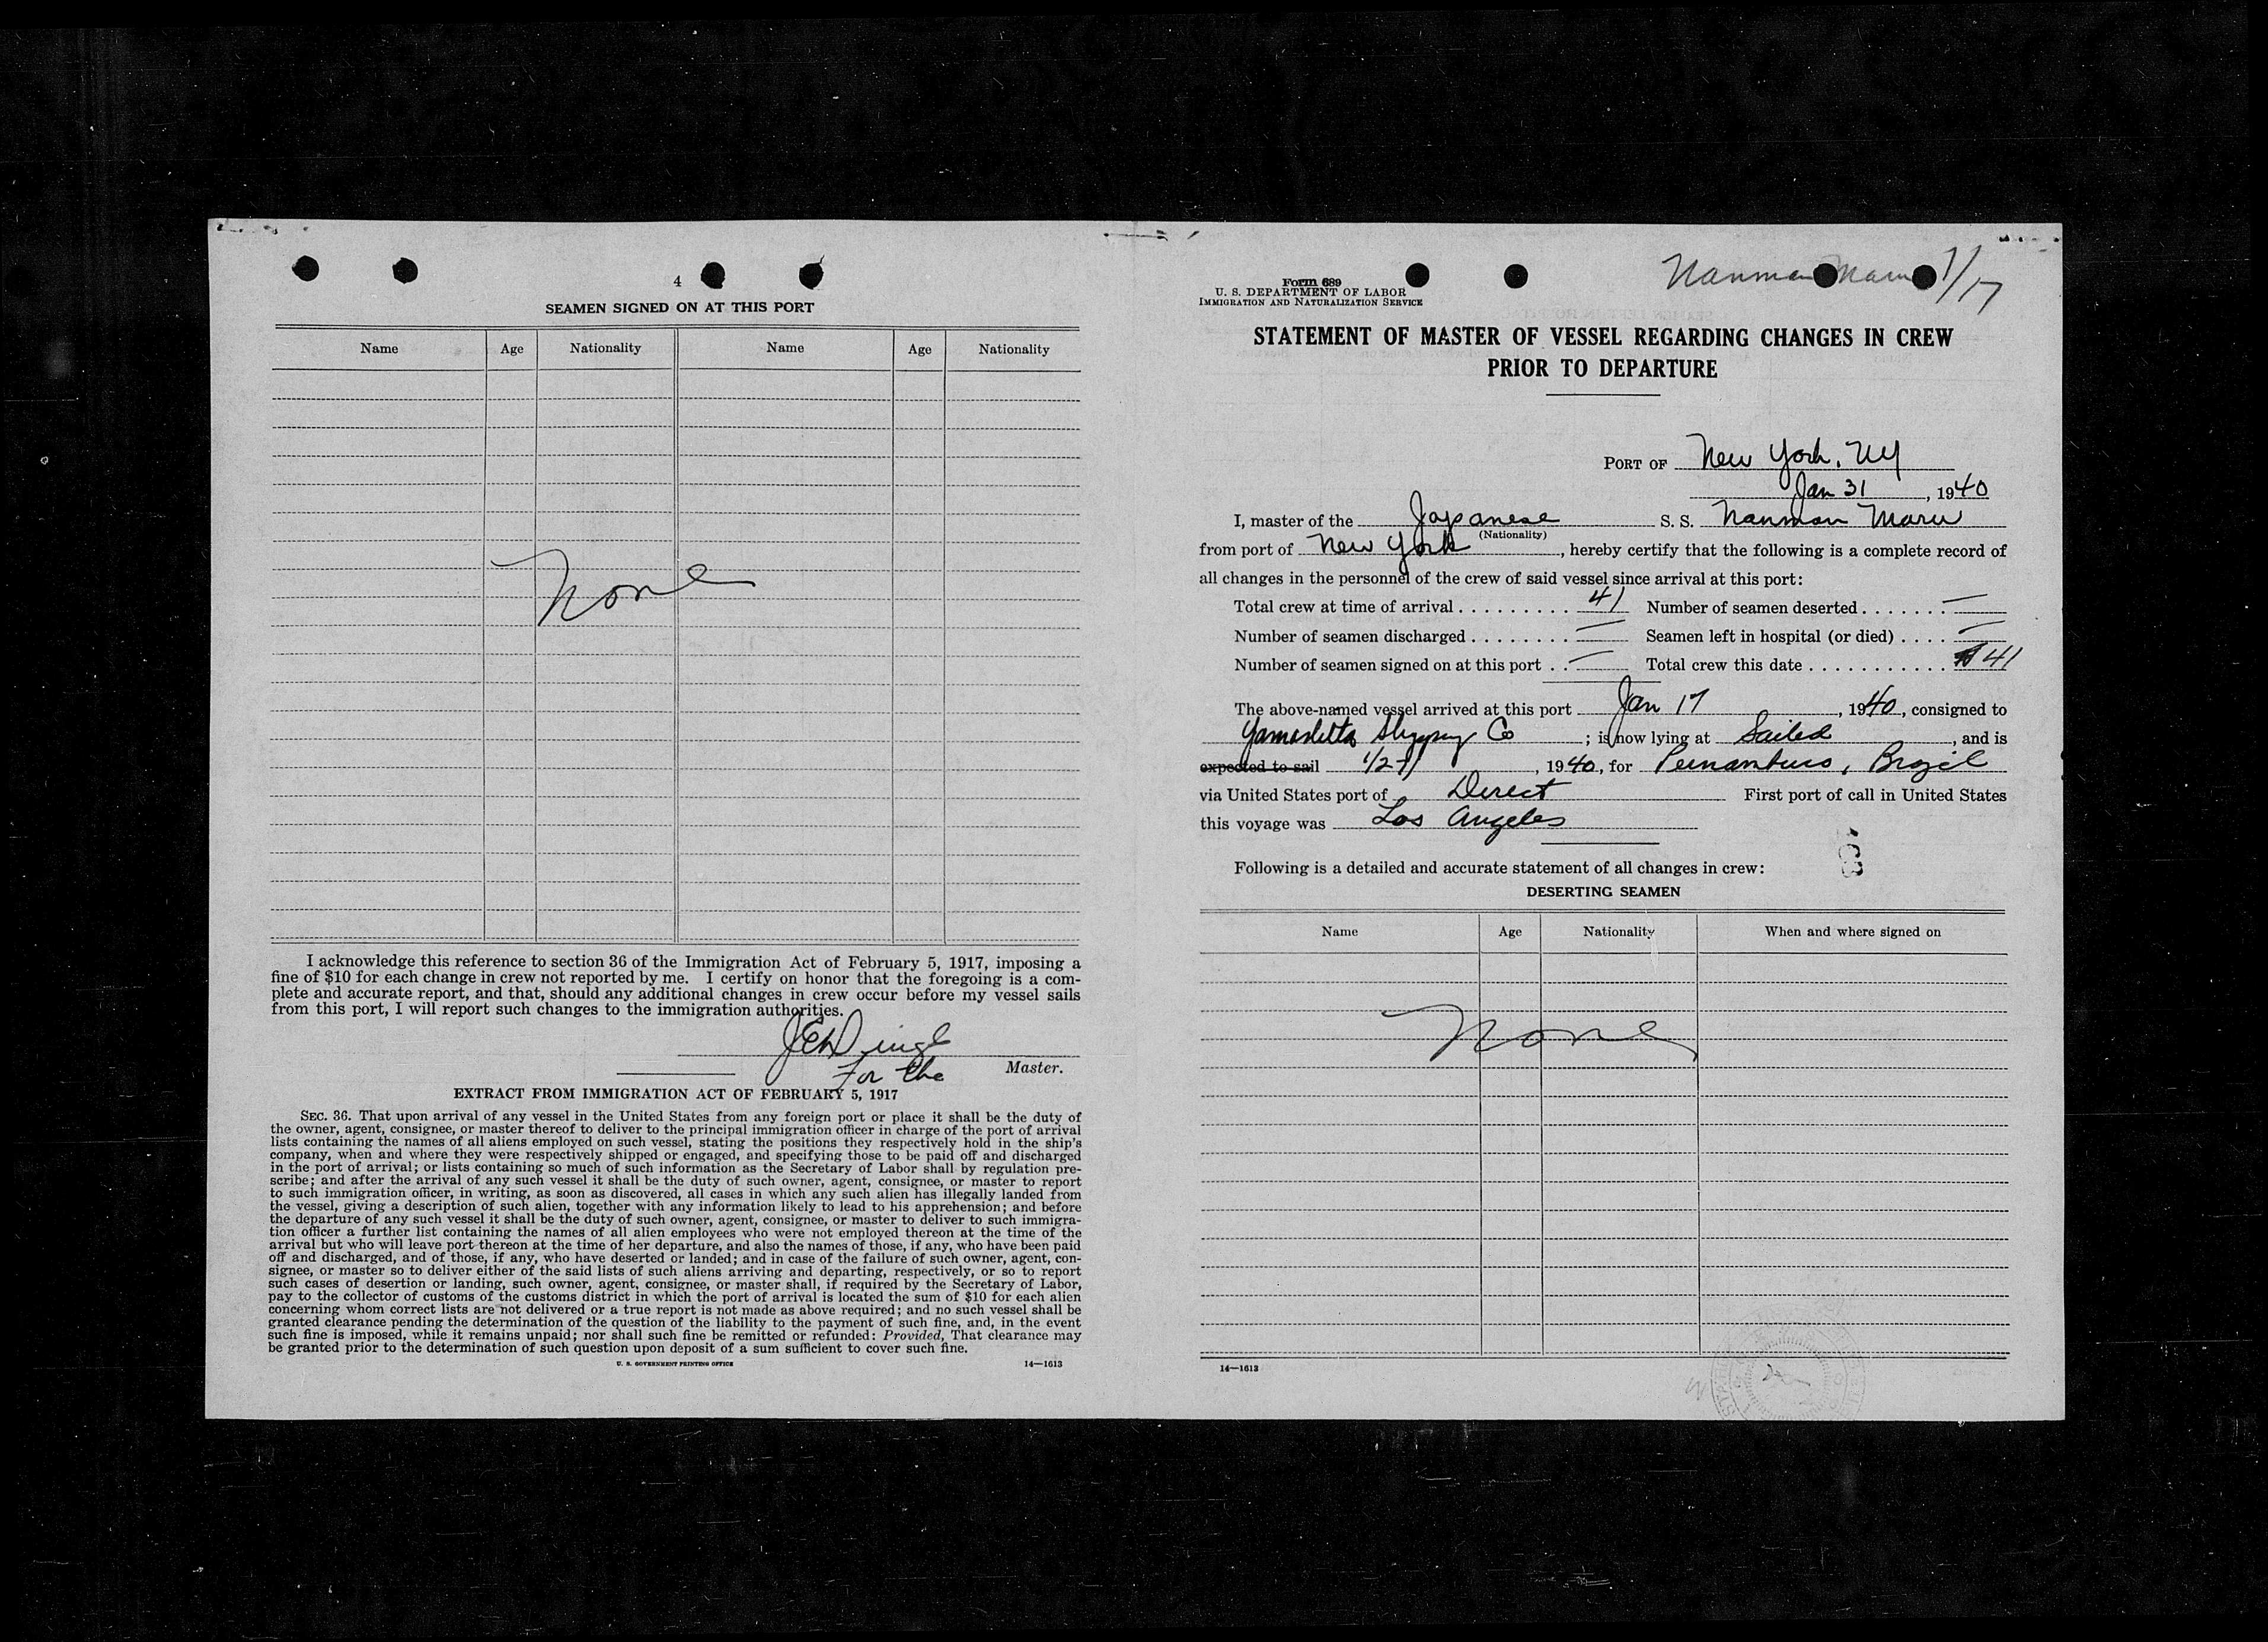 4
SEAMEN SIGNED ON AT THIS PORT
Name Age Nationality Name Age Nationality
None
I acknowledge this reference to section 36 of the Immigration Act of February 5, 1917, imposing a
fine of $10 for each change in crew not reported by me. I certify on honor that the foregoing is a com-
plete and accurate report, and that, should any additional changes in crew occur before my vessel sails
from this port, I will report such changes to the immigration authorities.
For the Master.
EXTRACT FROM IMMIGRATION ACT OF FEBRUARY 5, 1917
SEC. 36. That upon arrival of any vessel in the United States from any foreign port or place it shall be the duty of
the owner, agent, consignee, or master thereof to deliver to the principal immigration officer in charge of the port of arrival
lists containing the names of all aliens employed on such vessel, stating the positions they respectively hold in the ship's
company, when and where they were respectively shipped or engaged, and specifying those to be paid off and discharged
in the port of arrival; or lists containing so much of such information as the Secretary of Labor shall by regulation pre-
scribe; and after the arrival of any such vessel it shall be the duty of such owner, agent, consignee, or master to report
to such immigration officer, in writing, as soon as discovered, all cases in which any such alien has illegally landed from
the vessel, giving a description of such alien, together with any information likely to lead to his apprehension; and before
the departure of any such vessel it shall be the duty of such owner, agent, consignee, or master to deliver to such immigra-
tion officer a further list containing the names of all alien employees who were not employed thereon at the time of the
arrival but who will leave port thereon at the time of her departure, and also the names of those, if any, who have been paid
off and discharged, and of those, if any, who have deserted or landed; and in case of the failure of such owner, agent, con-
signee, or master so to deliver either of the said lists of such aliens arriving and departing, respectively, or so to report
such cases of desertion or landing, such owner, agent, consignee, or master shall, if required by the Secretary of Labor,
pay to the collector of customs of the customs district in which the port of arrival is located the sum of $10 for each alien
concerning whom correct lists are not delivered or a true report is not made as above required; and no such vessel shall be
granted clearance pending the determination of the question of the liability to the payment of such fine, and, in the event
such fine is imposed, while it remains unpaid; nor shall such fine be remitted or refunded: Provided, That clearance may
be granted prior to the determination of such question upon deposit of a sum sufficient to cover such fine.
U. S. GOVERNMENT PRINTING OFFICE 14—1613
Nanman Maru 1/17
Form 689
U. S. DEPARTMENT OF LABOR
IMMIGRATION AND NATURALIZATION SERVICE
STATEMENT OF MASTER OF VESSEL REGARDING CHANGES IN CREW
PRIOR TO DEPARTURE
PORT OF New York, NY
Jan 31, 1940
I, master of the Japanese S. S. Nanman Maru
(Nationality)
from port of New York, hereby certify that the following is a complete record of
all changes in the personnel of the crew of said vessel since arrival at this port:
Total crew at time of arrival 41 Number of seamen deserted —
Number of seamen discharged — Seamen left in hospital (or died) —
Number of seamen signed on at this port — Total crew this date 41
The above-named vessel arrived at this port Jan 17, 1940, consigned to
Co; is now lying at Sailed, and is
expected to sail 1/27/, 1940, for Pernambuco, Brazil
via United States port of Direct First port of call in United States
this voyage was Los Angeles
Following is a detailed and accurate statement of all changes in crew:
DESERTING SEAMEN
Name Age Nationality When and where signed on
None
14—1613